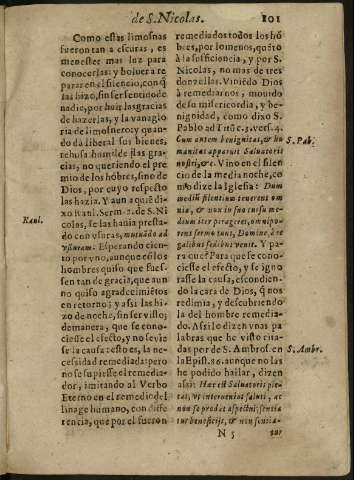 de S. Nicolas. 101
Como estas limosnas
fueron tan a escuras, es
menester mas luz para
conocerlas: y boluer a re
parar en el silencio, con q̃
las hizo, sin ser sentido de
nadie, por huir las gracias
de hazerlas, y la vanaglo
ria de limosnero: y quan-
do dà liberal sus bienes,
rehusa humilde las gra-
cias, no queriendo el pre
mio de los hõbres, sino de
Dios, por cuyo respeto
las hazia. Y aun a quiẽ di-
xo Raul. Serm. 2. de S. Ni
colas, se las hauia presta-
do con vsuras, mutuado ad
vsuram: Esperando cien-
to por vno, aunque es los
hombres quiso que fues-
sen tan de gracia, que aun
no quiso agradecimiẽtos
en retorno; y assi las hi-
zo de noche, sin ser visto;
de manera, que se cono-
ciesse el efecto, y no se vie
se la causa: esto es, la ne-
cessidad remediada: pero
no se supiesse el remedia-
dor, imitando al Verbo
Eterno en el remedio del
linage humano, con diffe
rencia, que por el fueron
Raul.
remediados todos los hõ
bres, por lo menos, quẽto
à la sufficiencia, y por S.
Nicolas, no mas de tres
donzellas. Viniẽdo Dios
à remediarnos, mouido
de su misericordia, y be-
nignidad, como dixo S.
Pablo ad Titũ c. 3. vers. 4.
Cum autem benignitas, & hu
manitas apparuit Saluatoris
nostri, &c. Vino en el silen
cio de la media noche, co
mo dize la Iglesia: Dum
medium silentium tenerent om
nia, & nox in suo cursu me-
dium iter perageret, omnipo-
tens sermo tuus, Domine, à re
galibus sedibus venit. Y pa-
ra que? Para que se cono-
ciesse el efecto, y se igno
rasse la causa, escondien-
do la cara de Dios, q̃ nos
redimia, y descubriendo
la del hombre remedia-
do. Assi lo dizen vnas pa
labras que he visto cita-
das por de S. Ambros. en
la Epist. 36. aunque no las
he podido hallar, dizen
assi: Hæc est Saluatoris pie-
tas, vt interueniat saluti, ac
non se prodat aspectui; sentia
tur beneficijs, & non sentia-
S. Pab.
S. Ambr.
N 5
tur